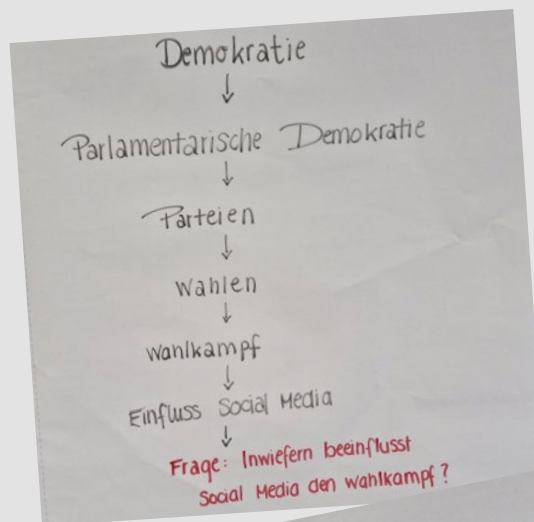 Demokratie
↓
Parlamentarische Demokratie
↓
Parteien
↓
Wahlen
↓
Wahlkampf
↓
Einfluss Social Media
↓
Frage: Inwiefern beeinflusst
Social Media den Wahlkampf?